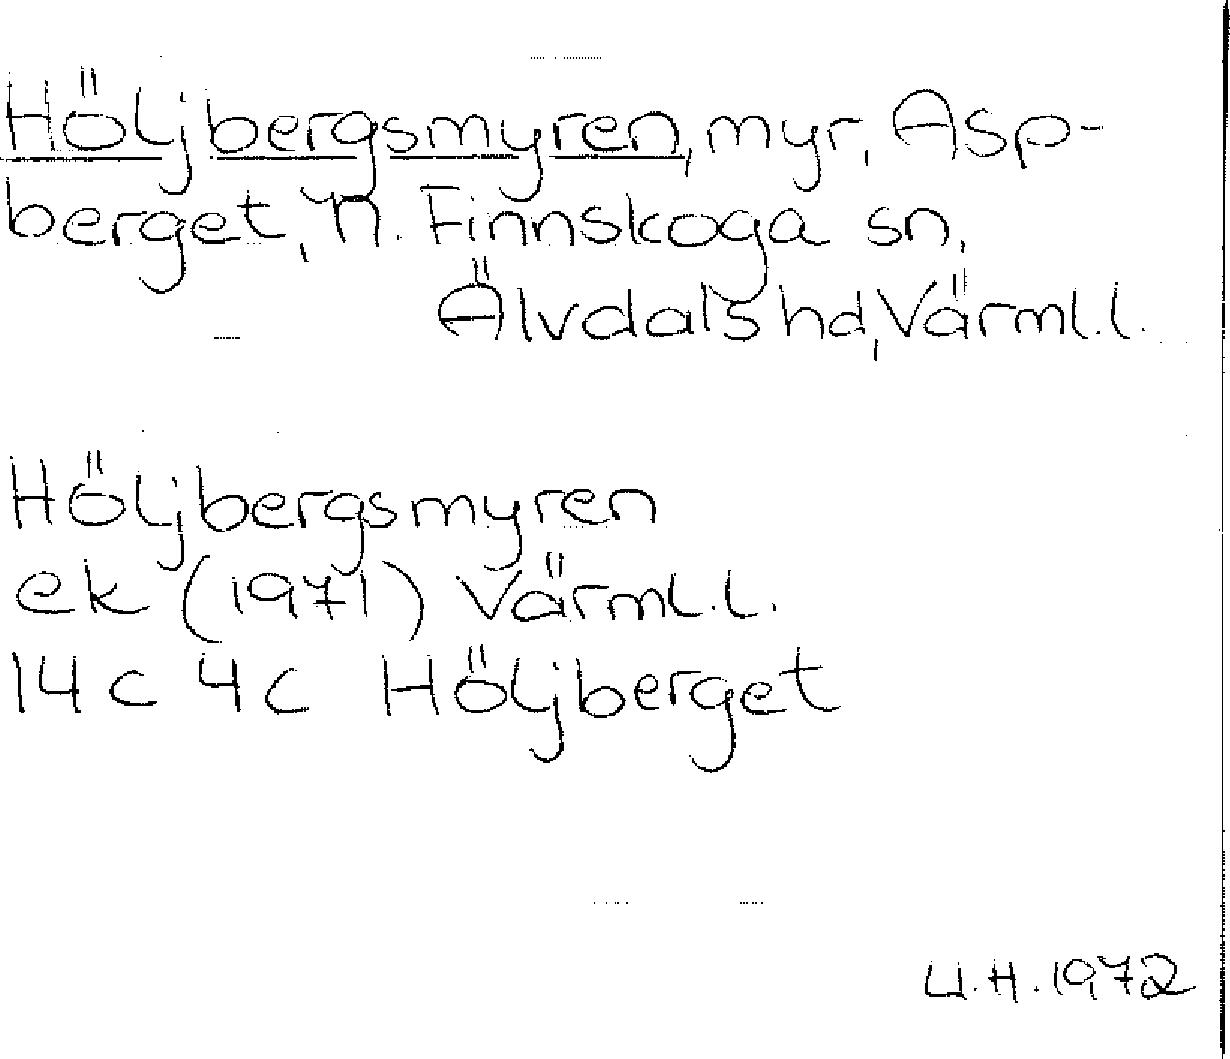 Höljbergsmyren, myr, Asp-
berget, N. Finnskoga sn,
Älvdals hd, Värml.l.
Höljbergsmyren
ek (1971) Värml.l.
14 c 4c Höljberget
U.H. 1972